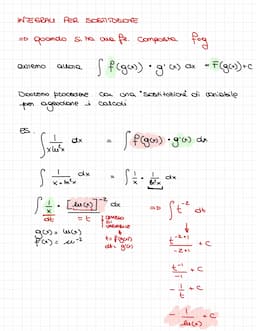 INTEGRALI PER SOSTITUZIONE
⇒ quando si ha una fz. composta f∘g
avremo allora ∫ f(g(x)) · g'(x) dx = F(g(x)) + c
Dovremo procedere con una "sostituzione" di variabile
per agevolare i calcoli
es.
∫ 1/(x ln²x) dx = ∫ f(g(x)) · g'(x) dx
∫ 1/(x · ln²x) dx = ∫ 1/x · 1/ln²x dx
∫ 1/x · [ln(x)]⁻² dx ⇒ ∫ t⁻² dt
dt = t
g(x) = ln(x)
f(x) = x⁻²
di variabile
t = g(x)
dt = g'(x)
t⁻²⁺¹/(-2+1) + C
t⁻¹/-1 + C
- 1/t + C
- 1/ln(x) + C